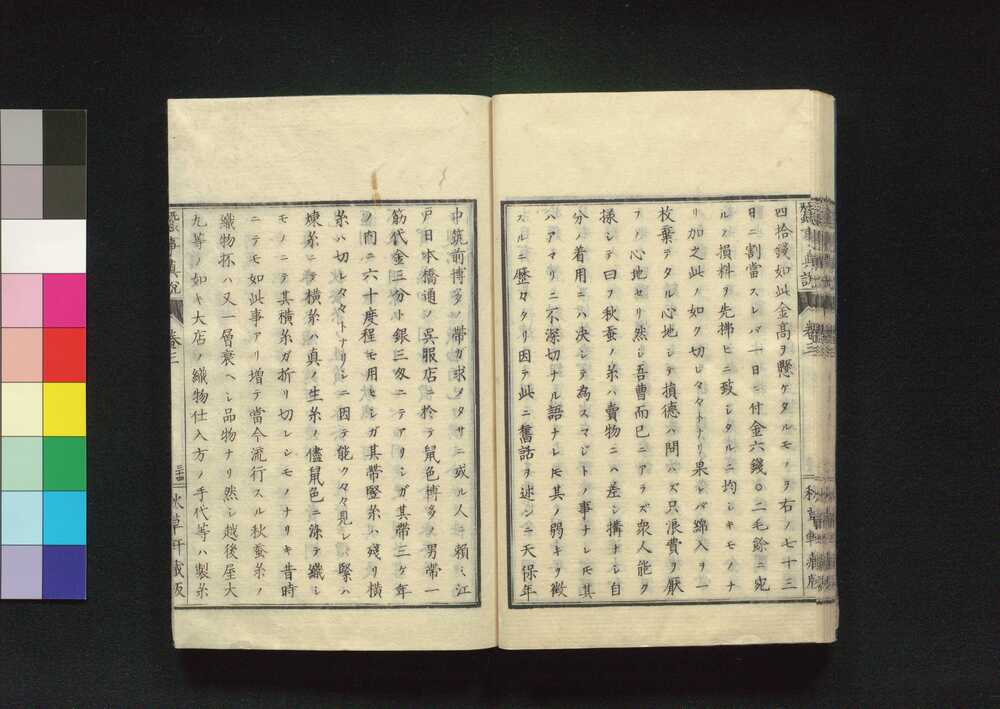 四拾錢如此金高ヲ懸ケタルモノヲ右ノ七十三
日ニ割當スレバ一日ニ付金六錢〇二毛餘ニ宛
ルノ損料ヲ先拂ヒニ致シタルニ均シキモノナ
リ加之此ノ如ク切レタヽトナリ果レバ綿入ヲ一
枚棄テタル心地シテ損德ハ問ハズ只浪費ヲ厭
フノ心地セリ然シ吾曹而已ニアラズ衆人能ク
樣シテ曰フ秋蚕ノ糸ハ賣物ニハ差シ搆ナシ自
分ノ着用ニハ決シテ為スマジトノ事ナレ𪜈其
ハアマリニ不深切ナル語ナレ𪜈其ノ弱キヲ徴
スルニ歷々タリ因テ此ニ舊話ヲ述ンニ天保年
中筑前博多ノ帶ガ求メタサニ或ル人ニ賴ミ江
戸日本橋通ノ呉服店ニ於テ鼠色博多ノ男帶一
筋代金三分ト銀三匁ニテアリシガ其帶三ケ年
ノ間ニ六十度程モ用ヒシガ其帶竪糸ハ殘リ橫
糸ハ切レタヽトナリシニ因テ能ク々々見レバ竪ハ
煉糸ニテ橫糸ハ真ノ生糸ノ儘鼠色ニ染テ織シ
モノニテ其橫糸ガ折リ切レシモノナリキ昔時
ニテモ如此事アリ增テ當今流行スル秋蚕糸ノ
織物抔ハ又一層衰ヘシ品物ナリ然シ越後屋大
丸等ノ如キ大店ノ織物仕入方ノ手代等ハ製糸
蚕事真説
卷三
秋草軒藏版